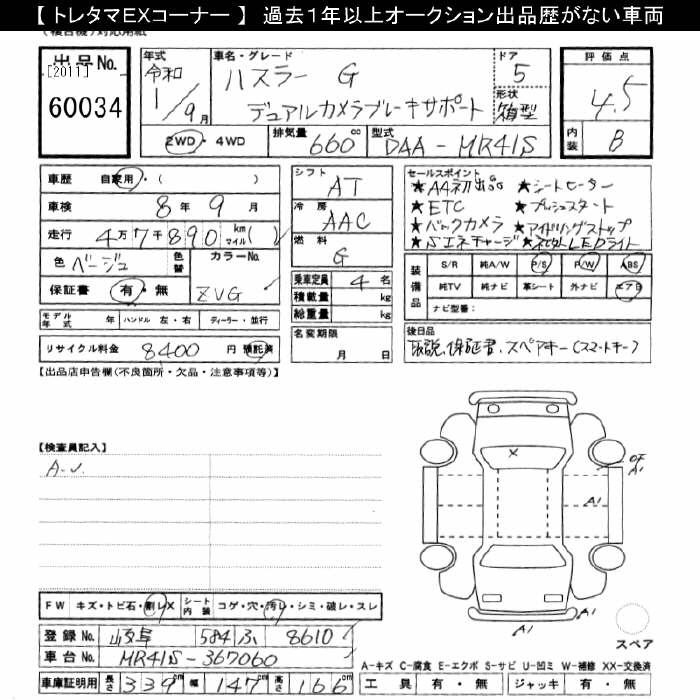 【トレタマEXコーナー】 過去1年以上オークション出品歴がない車両
出品No.
[2011]
60034
年式
令和
1/9月
車名・グレード
ハスラー G
デュアルカメラブレーキサポート
ドア
5
形状
箱型
評価点
4.5
内装
B
2WD・4WD
排気量 660cc
型式 DAA-MR41S
車歴 自家用・( )
車検 8年9月
走行 4万7千890 km マイル( )
色 ベージュ
色替
カラーNo.
ZVG
保証書 有・無
モデル年式 年
ハンドル 左・右
ディーラー・並行
リサイクル料金 8400円 預託済
シフト
AT
冷房
AAC
燃料
G
乗車定員 4名
積載量 kg
総重量 kg
名変期限
月 日
セールスポイント
★AA初出品 ★シートヒーター
★ETC ★プッシュスタート
★バックカメラ ★アイドリングストップ
★Sエネチャージ ★LEDライト
装備品
S/R 純A/W P/S P/W ABS
純TV 純ナビ 革シート 外ナビ エアB
ナビ型番:
後日品
取説、保証書、スペアキー(スマートキー)
【出品店申告欄(不良箇所・欠品・注意事項等)】
【検査員記入】
A-U
X
OF
A1
A1
A1
スペア
FW キズ・トビ石・割レX
シート内装 コゲ・穴・汚レ・シミ・破レ・スレ
登録No. 岐阜 584 ふ 8610
車台No. MR41S-367060
車庫証明用 長さ 339cm 幅 147cm 高さ 166cm
A-キズ C-腐食 E-エクボ S-サビ U-凹ミ W-補修 XX-交換済
工具 有・無 ジャッキ 有・無